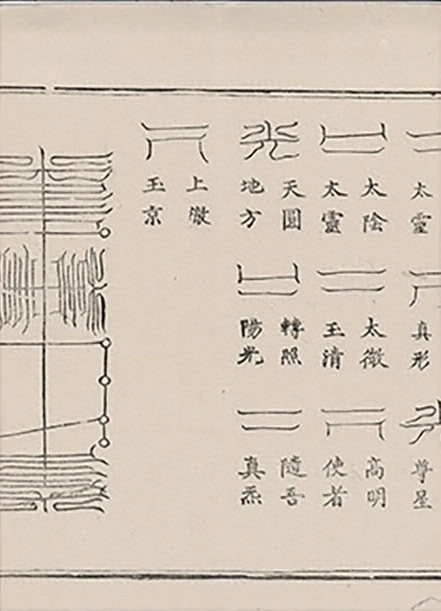 太靈
真形
尊星
太陰
太靈
太微
玉清
高明
使者
天圓
地方
轉照
陽光
隨吾
真炁
上徹
玉京